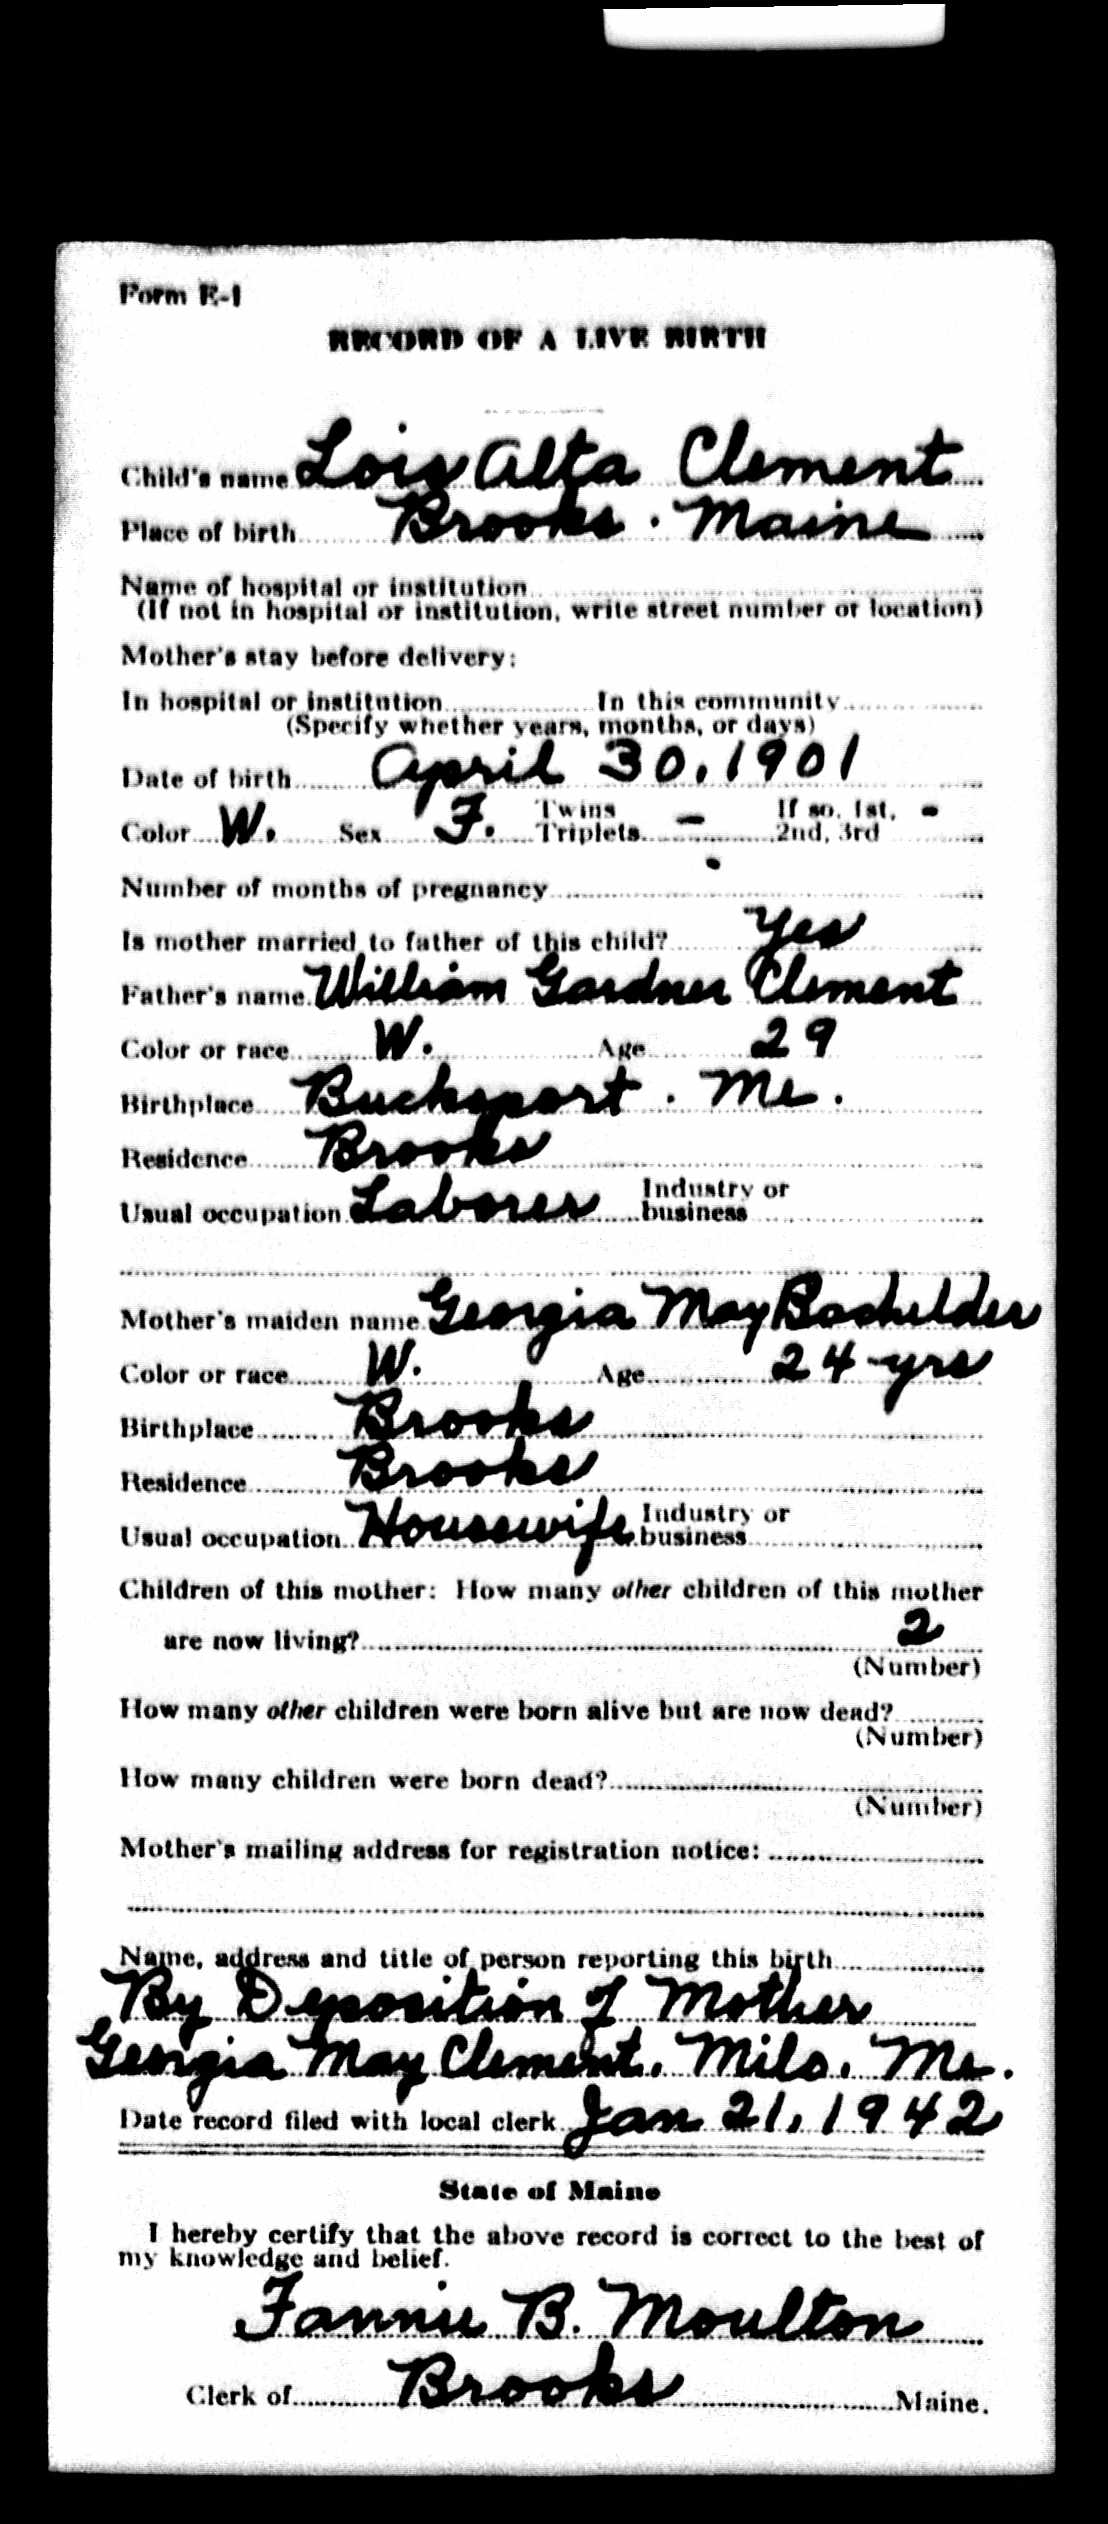 Form E-1
RECORD OF A LIVE BIRTH
Child's name Lois Alta Clement
Place of birth Brooks. Maine
Name of hospital or institution
(If not in hospital or institution, write street number or location)
Mother's stay before delivery:
In hospital or institution In this community
(Specify whether years, months, or days)
Date of birth April 30, 1901
Color W. Sex F. Twins Triplets - If so, 1st, 2nd, 3rd -
Number of months of pregnancy
Is mother married to father of this child? Yes
Father's name William Gardner Clement
Color or race W. Age 29
Birthplace Bucksport. Me.
Residence Brooks
Usual occupation Laborer Industry or business
Mother's maiden name Georgia May Bachelder
Color or race W. Age 24 yrs
Birthplace Brooks
Residence Brooks
Usual occupation Housewife Industry or business
Children of this mother: How many other children of this mother
are now living? 2
(Number)
How many other children were born alive but are now dead?
(Number)
How many children were born dead?
(Number)
Mother's mailing address for registration notice:
Name, address and title of person reporting this birth
By Deposition of Mother
Georgia May Clement. Milo. Me.
Date record filed with local clerk Jan 21, 1942
State of Maine
I hereby certify that the above record is correct to the best of
my knowledge and belief.
Fannie B. Moulton
Clerk of Brooks Maine.